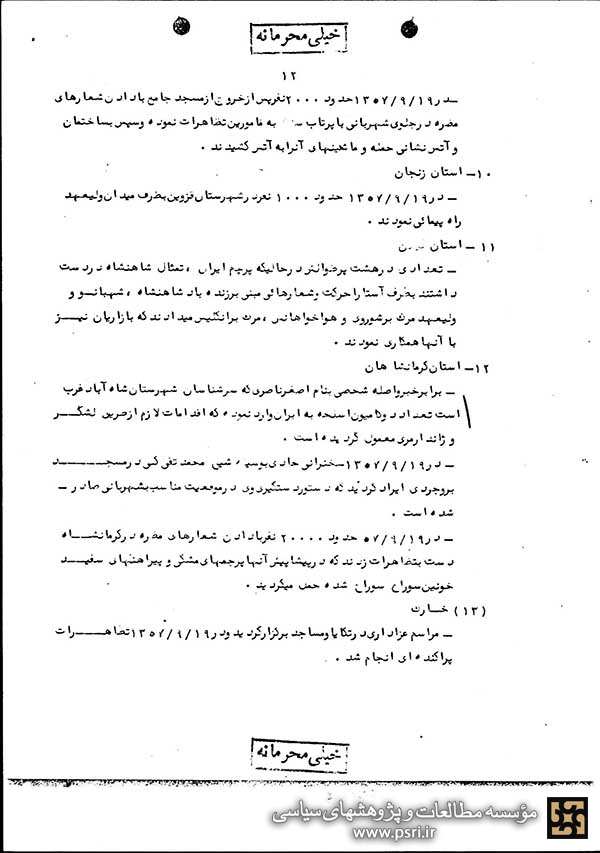 خیلی محرمانه
۱۲
ـ در ۱۳۵۷/۹/۱۹ حدود ۲۰۰۰ نفر پس از خروج از مسجد جامع با دادن شعارهای
مضره در جلوی شهربانی با پرتاب به مامورین تظاهرات نموده و سپس بساختمان
و آتش نشانی حمله و ماشینهای آنرا به آتش کشیدند .
۱۰ـ استان زنجان
ـ در ۱۳۵۷/۹/۱۹ حدود ۱۰۰۰ نفر در شهرستان قزوین بطرف میدان ولیعهد
راه پیمائی نمودند .
۱۱ ـ استان
ـ تعدادی در هشت پر طوالش در حالیکه پرچم ایران ، تمثال شاهنشاه در دست
داشتند بطرف آستارا حرکت و شعارهائی مبنی بر زنده باد شاهنشاه ، شهبانو و
ولیعهد مرگ بر شوروی و هواخواهانش ، مرگ بر انگلیس میدادند که بازاریان نیز
با آنها همکاری نمودند .
۱۲ـ استان کرمانشاهان
ـ برابر خبر واصله شخصی بنام اصغر ناصری که سرشناسان شهرستان شاه آباد غرب
است تعداد دو کامیون اسلحه به ایران وارد نموده که اقدامات لازم از طریق لشگر
و ژاندارمری معمول گردیده است .
ـ در ۱۳۵۷/۹/۱۹ سخنرانی حادی بوسیله شیخ محمد تقی در مسجد
بروجردی ایراد گردید که دستور دستگیری وی در موقعیت مناسب بشهربانی صادر ـ
شده است .
ـ در ۵۷/۹/۱۹ حدود ۲۰۰۰۰ نفر با دادن شعارهای مضره در کرمانشاه
دست بتظاهرات زدند که در پیشاپیش آنها پرچمهای مشکی و پیراهنهای سفید
خونین سوراخ سوراخ شده حمل میگردید .
(۱۳) خسارت
ـ مراسم عزاداری در تکایا و مساجد برگزار گردید و در ۱۳۵۷/۹/۱۹ تظاهرات
پراکنده ای انجام شد .
خیلی محرمانه
مؤسسه مطالعات و پژوهشهای سیاسی
www.psri.ir